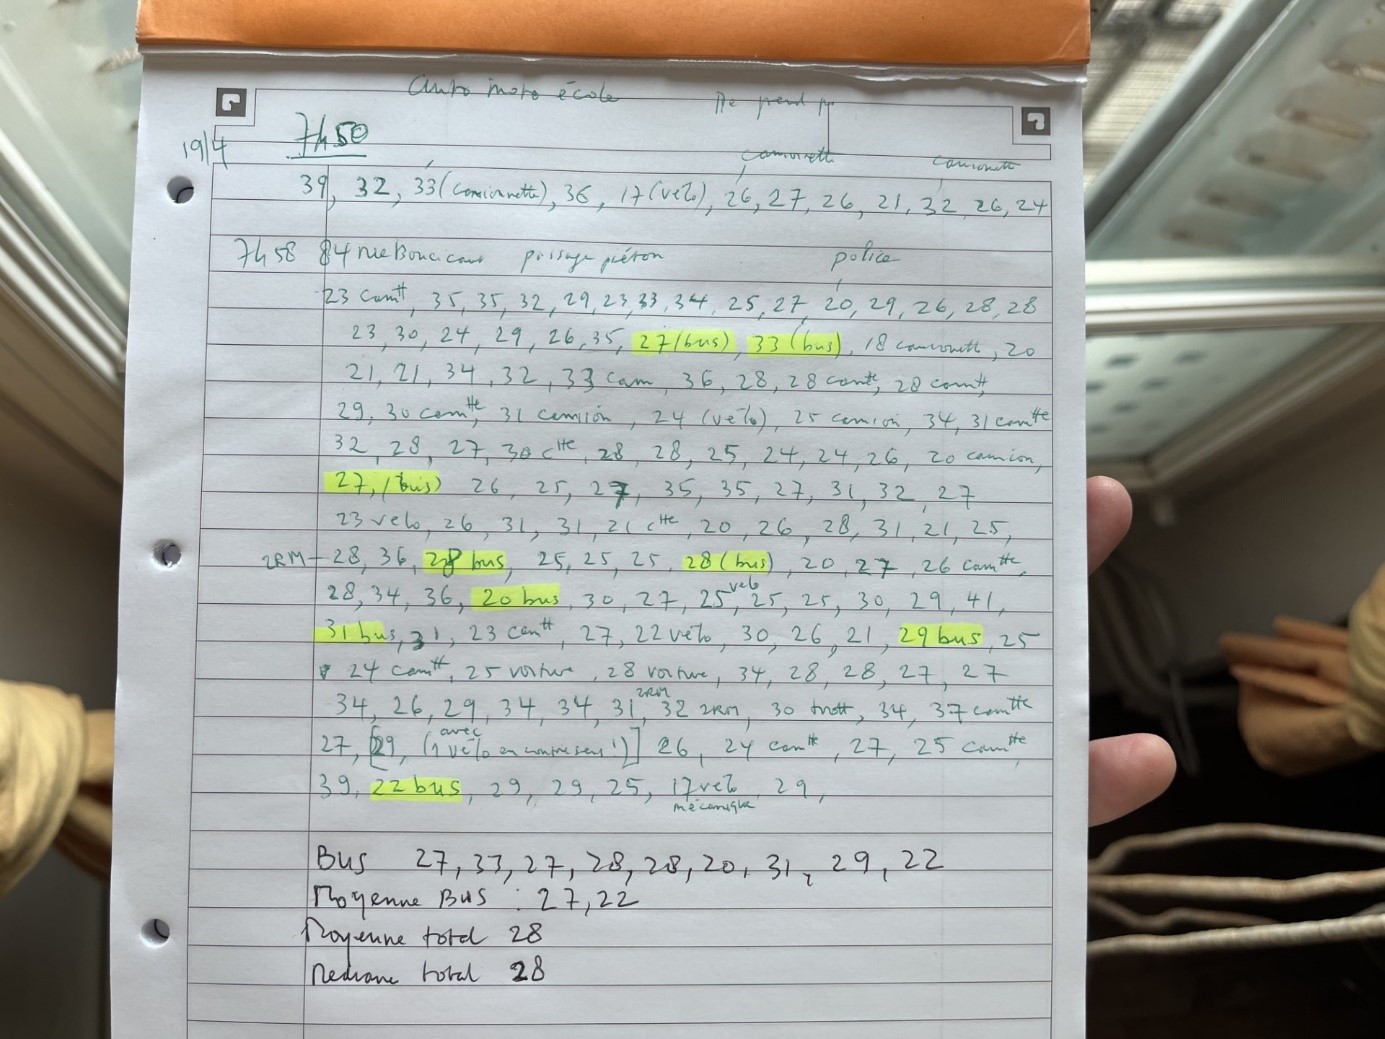 Auto moto école
19/4 7h50
camionette camionette
39, 32, 33 (camionnette), 36, 17 (vélo), 26, 27, 26, 21, 32, 26, 24
7h58 84 rue Boucicaut passage piéton police
23 camtt, 35, 35, 32, 29, 23, 33, 34, 25, 27, 20, 29, 26, 28, 28
23, 30, 24, 29, 26, 35, 27 (bus), 33 (bus), 18 camionette, 20
21, 21, 34, 32, 33 cam, 36, 28, 28 camtte, 28 camtt
29, 30 camtte, 31 camion, 24 (vélo), 25 camion, 34, 31 camtte
32, 28, 27, 30 ctte, 28, 28, 25, 24, 24, 26, 20 camion,
27, (bus) 26, 25, 27, 35, 35, 27, 31, 32, 27
23 velo, 26, 31, 31, 21 ctte, 20, 26, 28, 31, 21, 25,
2RM - 28, 36, 28 bus, 25, 25, 25, 28 (bus), 20, 27, 26 camtte,
28, 34, 36, 20 bus, 30, 27, 25 velo, 25, 25, 30, 29, 41,
31 bus, 31, 23 camtt, 27, 22 vélo, 30, 26, 21, 29 bus, 25
24 camtt, 25 voiture, 28 voiture, 34, 28, 28, 27, 27
34, 26, 29, 34, 34, 31 2RM, 32 2RM, 30 trott, 34, 37 camtte
27, [29, (avec 1 vélo en contresens!)] 26, 24 camtt, 27, 25 camtte,
39, 22 bus, 29, 29, 25, 17 vélo mécanique, 29,
Bus 27, 33, 27, 28, 28, 20, 31, 29, 22
Moyenne Bus : 27,22
Moyenne total 28
Mediane total 28